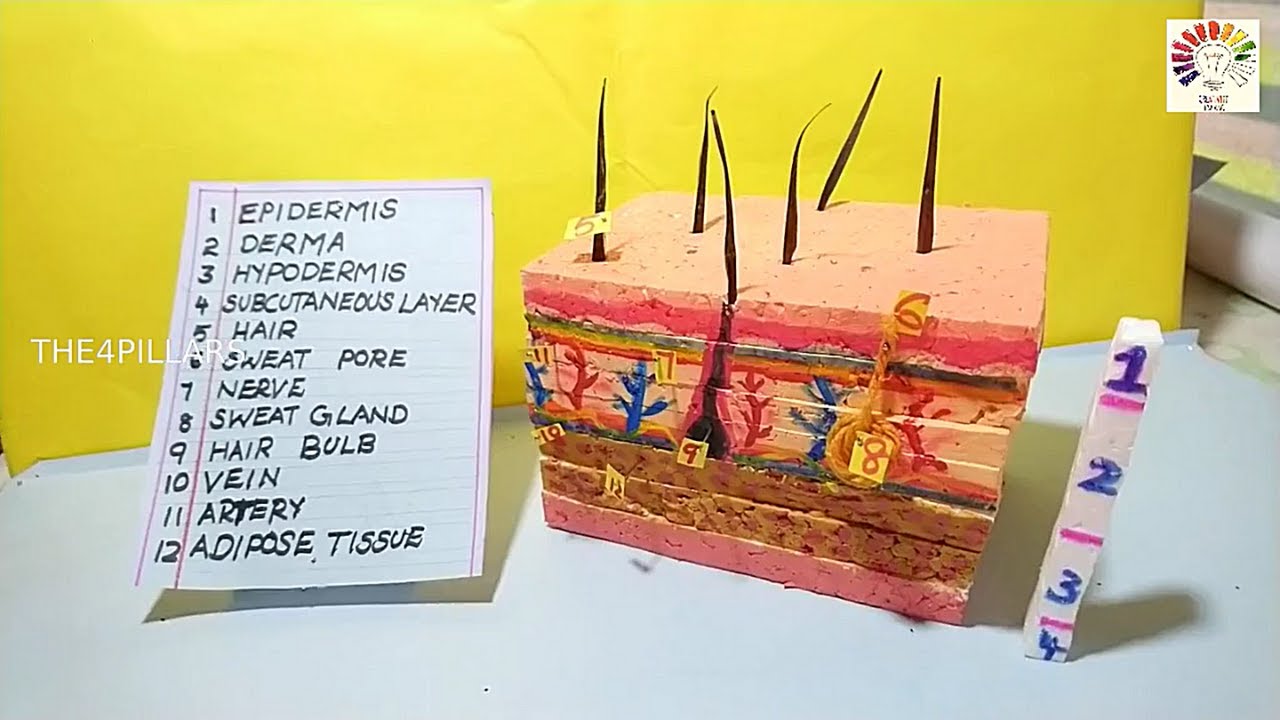 1 EPIDERMIS
2 DERMA
3 HYPODERMIS
4 SUBCUTANEOUS LAYER
5 HAIR
6 SWEAT PORE
7 NERVE
8 SWEAT GLAND
9 HAIR BULB
10 VEIN
11 ARTERY
12 ADIPOSE TISSUE
THE4PILLARS
5
6
11
7
10
9
8
12
1
2
3
4